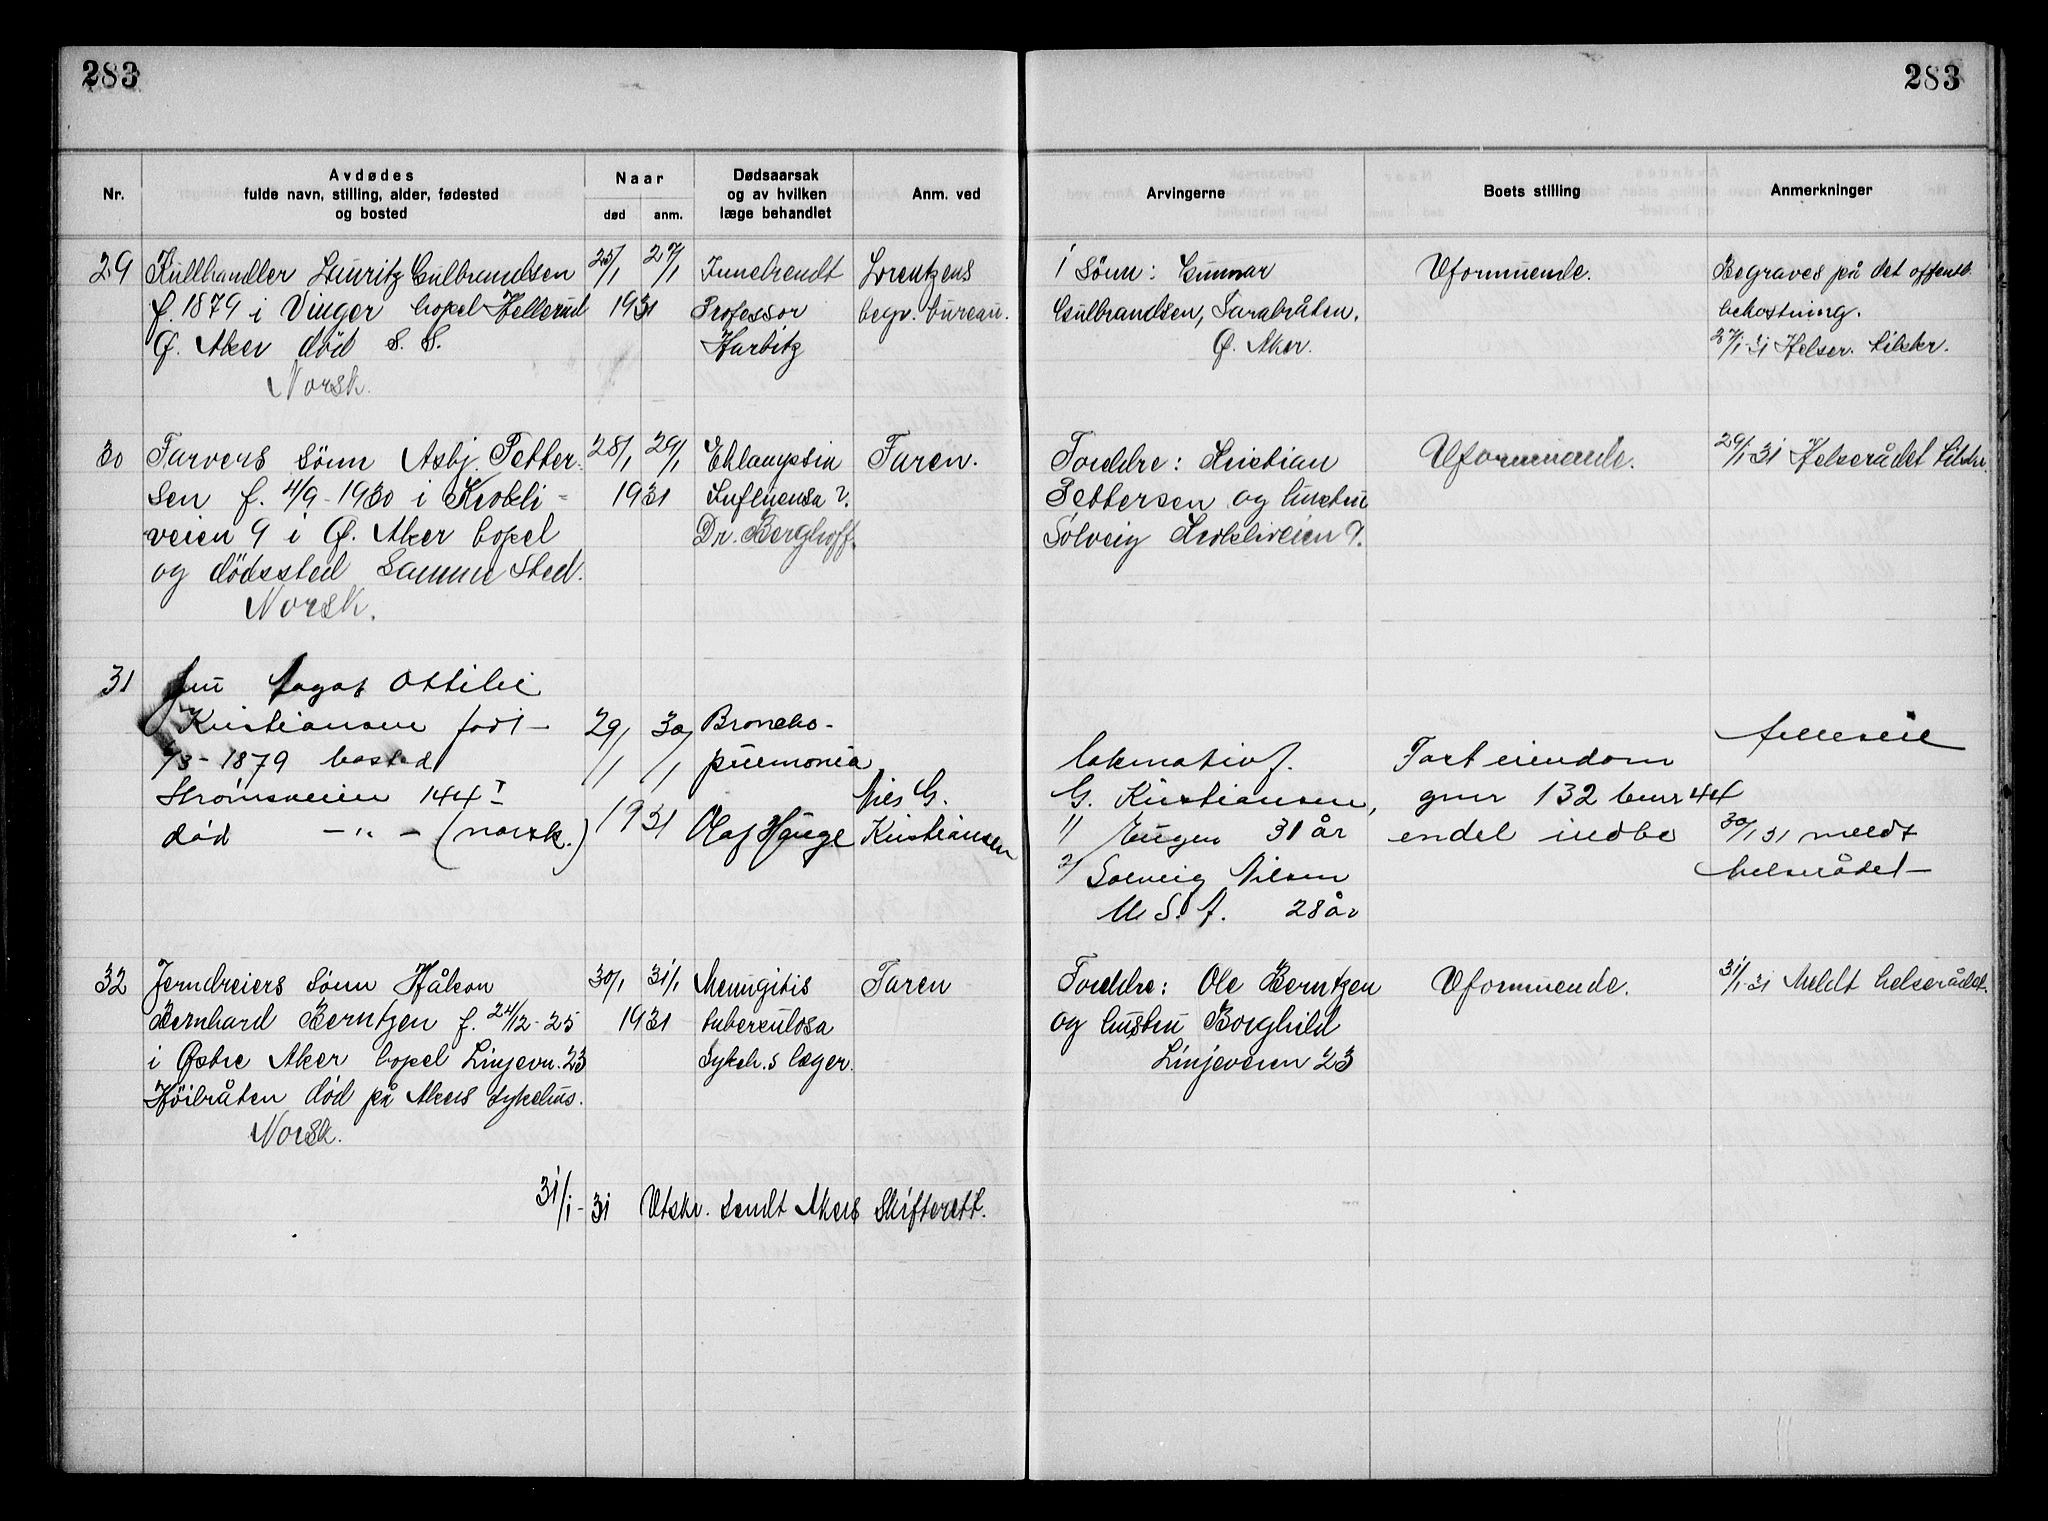 283
283
Nr.
Avdødes
fulde navn, stilling, alder, fødested
og bosted
Naar
død
anm.
Dødsaarsak
og av hvilken
læge behandlet
Anm. ved
Arvingerne
Boets stilling
Anmerkninger
29 Kullhandler Lauritz Gulbrandsen 25/1 27/1 Innebrendt Lorentzens
f. 1879 i Vinger bopel Hellerud 1931 Professor begr. bureau.
Ø. Aker død S. S. Harbitz
Norsk.
1 Sønn: Gunnar Uformuende. Begraves på det offentl.
Gulbrandsen, Tarabråten, bekostning.
Ø. Aker. 27/1-31 Helser. tilskr.
30 Farvers sønn Asbj. Petter- 28/1 29/1 Eklampsia Faren.
sen f. 4/9-1930 i Krokli- 1931 Influensa?
veien 9 i Ø. Aker bopel Dr. Berghoff.
og dødssted samme sted.
Norsk.
Foreldre: Kristian Uformuende. 29/1-31 Helserådet tilskr.
Pettersen og hustru
Solveig Krokliveien 9.
31 fru Aagot Ottilie
Kristiansen født 29/1 30/1 Broncho-
/3-1879 bosted pneumonia
Strømsveien 144 I Nils G.
død -"- (norsk.) 1931 Olaf Hauge Kristiansen
Lokomotivf. Fast eiendom
G. Kristiansen, gnr 132 bnr 44
1/ Eugen 31 år endel indbo 30/1 31 meldt
2/ Solveig Nilsen helserådet
28 år
32 Jerndreiers sønn Håkon 30/1 31/1 Meningitis Faren
Bernhard Berntzen f. 24/12-25 1931 tuberculosa
i Østre Aker bopel Linjevn. 23 Sykeh.s læger.
Høibråten død på Akers sykehus.
Norsk.
Foreldre: Ole Berntzen Uformuende. 31/1-31 Meldt helserådet.
og hustru Borghild
Linjeveien 23
31/1-31 Utskr. sendt Akers Skifterett.